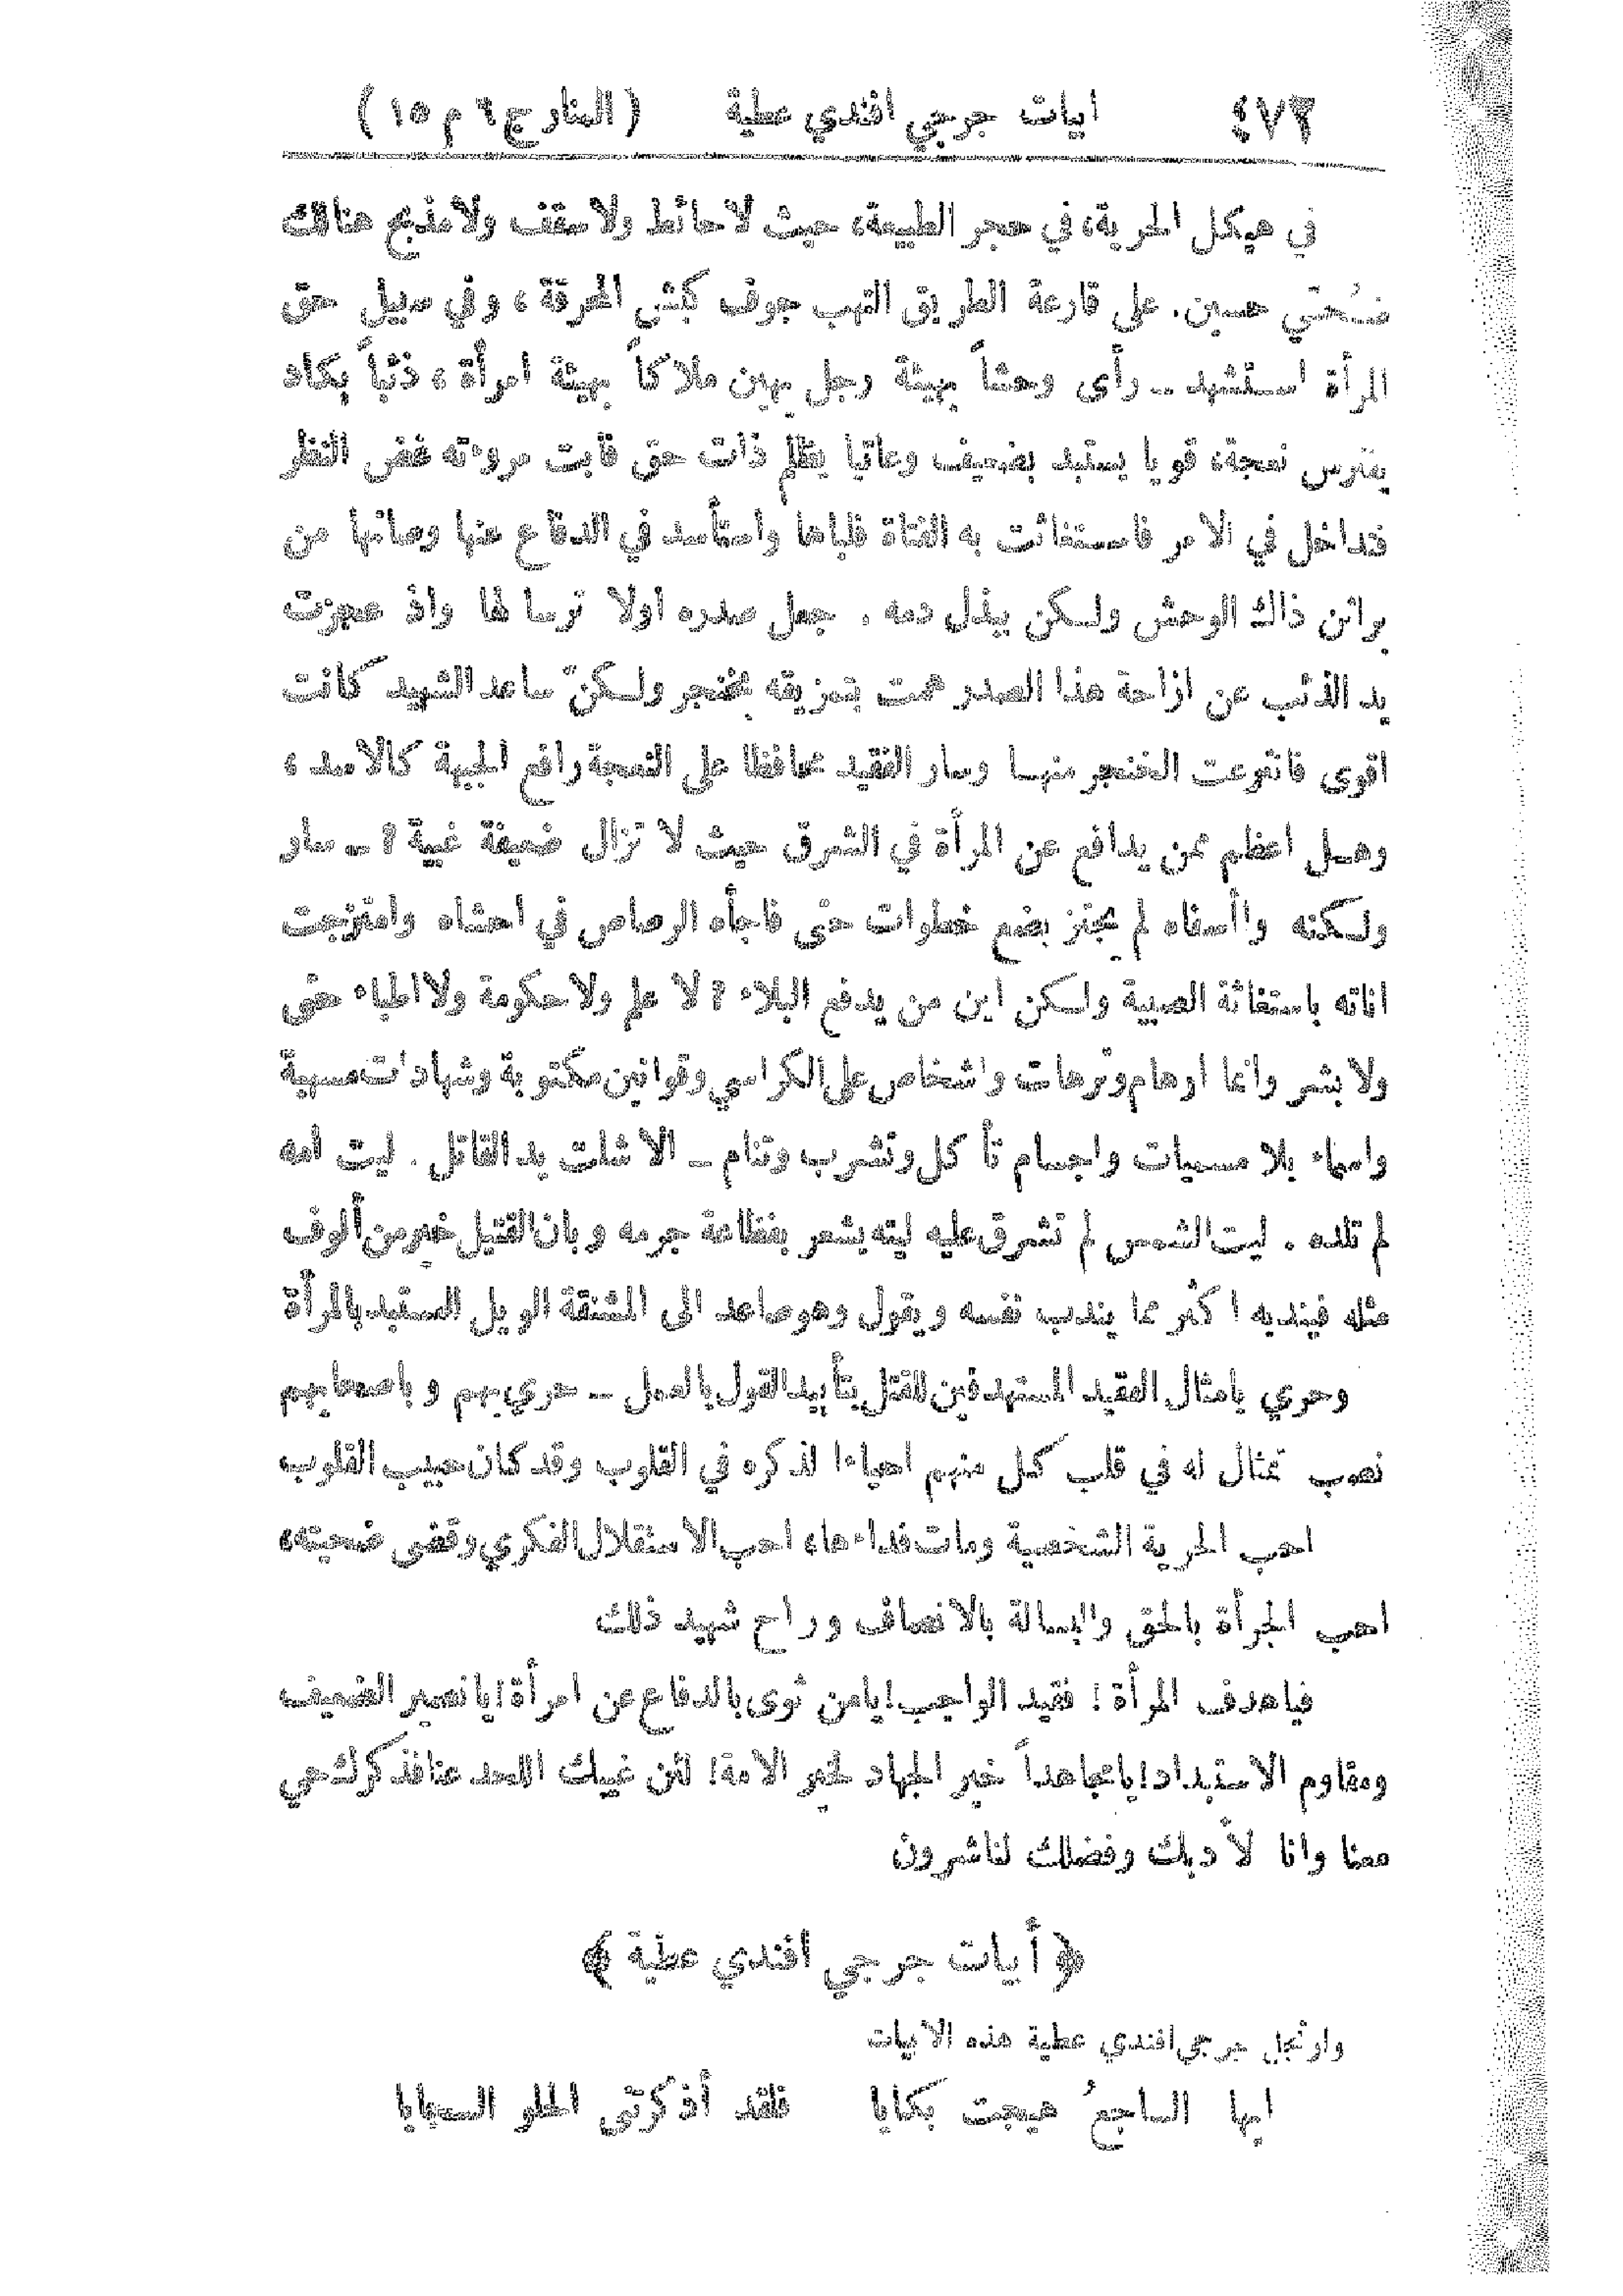 ٤٧٢ ابيات جرجي افندي عطية (المنار ج ٦ م ١٥)
في هيكل الحرية، في حجر الطبيعة، حيث لا حائط ولا سقف ولا مذبح هنالك
ضُحّي حسين. على قارعة الطريق التهب جوف كبش المحرقة، وفي سبيل حق
المرأة استشهد ــ رأى وحشاً بهيئة رجل يهين ملاكاً بهيئة امرأة، ذئباً يكاد
يفترس نعجة، قويا يستبد بضعيف وعاتيا يظلم ذات حق فأبت مروءته غض النظر
فتداخل في الامر فاستغاثت به الفتاة فلباها واستأسد في الدفاع عنها وصانها من
براثن ذاك الوحش ولكن ببذل دمه . جعل صدره اولا ترسا لها واذ عجزت
يد الذئب عن ازاحة هذا الصدر همت بتمزيقه بخنجر ولكنّ ساعد الشهيد كانت
اقوى فانتزعت الخنجر منها وسار الفقيد محافظا على النعجة رافع الجبهة كالاسد،
وهل اعظم ممن يدافع عن المرأة في الشرق حيث لا تزال ضعيفة غبية ؟ ــ سار
ولكنه واأسفاه لم يجتز بضع خطوات حتى فاجأه الرصاص في احشاه وامتزجت
اناته باستغاثة الصبية ولكن اين من يدفع البلاء ؟ لا علم ولا حكومة ولا اطباء حتى
ولا بشر وانما اوهام وترهات واشخاص على الكراسي وقوانين مكتوبة وشهادات مسهبة
واسماء بلا مسميات واجسام تأكل وتشرب وتنام ــ الا شلت يد القاتل . ليت امه
لم تلده . ليت الشمس لم تشرق عليه ليته يشعر بفظاعة جرمه وبان القتيل خير من ألوف
مثله فيندبه اكثر مما يندب نفسه ويقول وهو صاعد الى المشنقة الويل للمستبد بالمرأة
وحري بامثال الفقيد المستهدفين للقتل بتأييد القول بالعمل ــ حري بهم وباصحابهم
نصب تمثال له في قلب كل منهم احياءا لذكره في القلوب وقد كان حبيب القلوب
احب الحرية الشخصية ومات فداءها، احب الاستقلال الفكري وقضى ضحيته،
احب الجرأة بالحق والبسالة بالانصاف وراح شهيد ذلك
فيا هدف المرأة! فقيد الواجب! يامن ثوى بالدفاع عن امرأة! يا نصير الضعيف
ومقاوم الاستبداد! يا مجاهداً خير الجهاد لخير الامة! لئن غيبك اللحد عنا فذكرك حي
معنا وانا لأدبك وفضلك لناشرون
﴿ أبيات جرجي افندي عطية ﴾
وارتجل جرجي افندي عطية هذه الابيات
ايها الساجعُ هيجت بكايا فلقد أذكرتني الحلو السجايا